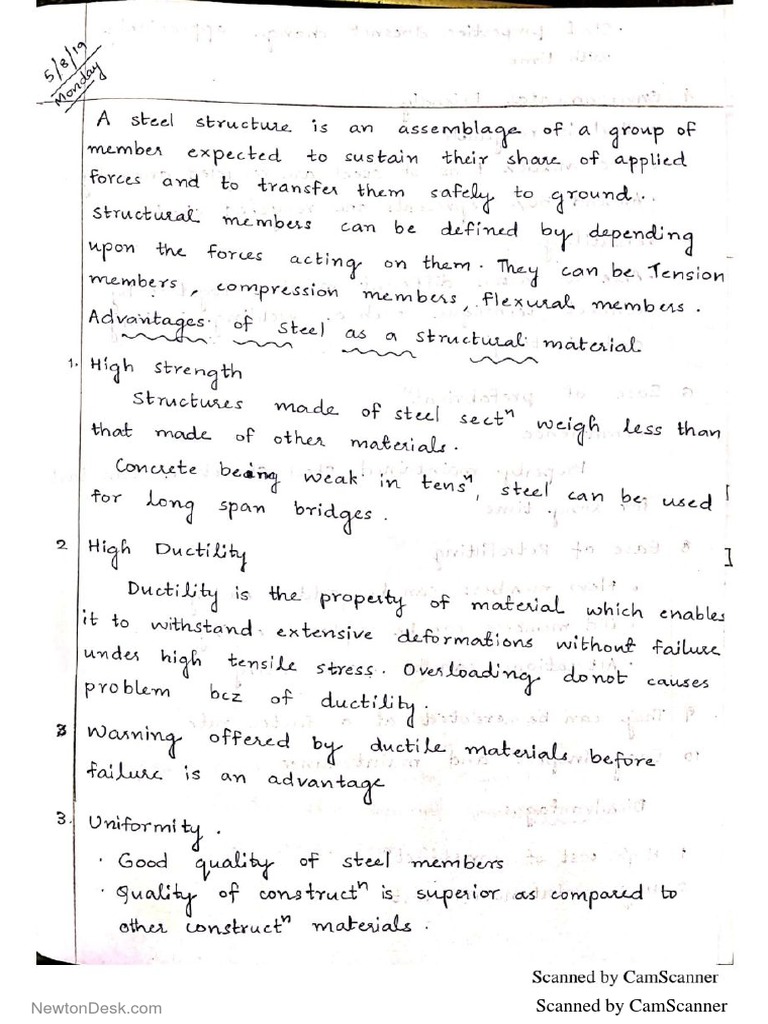 5/8/19
Monday
A steel structure is an assemblage of a group of
member expected to sustain their share of applied
forces and to transfer them safely to ground.
Structural members can be defined by depending
upon the forces acting on them. They can be Tension
members, compression members, flexural members.
Advantages of steel as a structural material
1. High strength
Structures made of steel sectⁿ weigh less than
that made of other materials.
Concrete being weak in tensⁿ, steel can be used
for long span bridges.
2 High Ductility
Ductility is the property of material which enables
it to withstand extensive deformations without failure
under high tensile stress. Overloading donot causes
problem bcz of ductility.
3 Warning offered by ductile materials before
failure is an advantage
3. Uniformity.
· Good quality of steel members
· Quality of constructⁿ is superior as compared to
other constructⁿ materials.
Scanned by CamScanner
NewtonDesk.com
Scanned by CamScanner